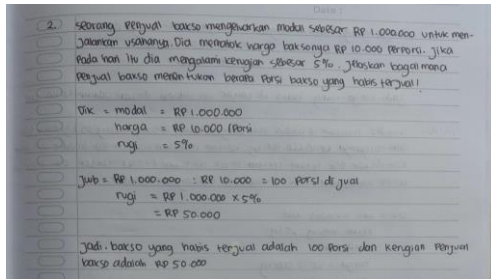 2. seorang penjual bakso mengeluarkan modal sebesar RP 1.000.000 untuk men-
jalankan usahanya. Dia mematok harga baksonya RP 10.000 perporsi. Jika
pada hari itu dia mengalami kerugian sebesar 5%. jelaskan bagaimana
penjual bakso menentukan berapa porsi bakso yang habis terjual!
Dik = modal = RP 1.000.000
harga = RP 10.000 /Porsi
rugi = 5%
Jwb = RP 1.000.000 : RP 10.000 = 100 porsi di jual
rugi = RP 1.000.000 x 5%
= RP 50.000
Jadi, bakso yang habis terjual adalah 100 porsi dan kerugian Penjual
bakso adalah RP 50.000